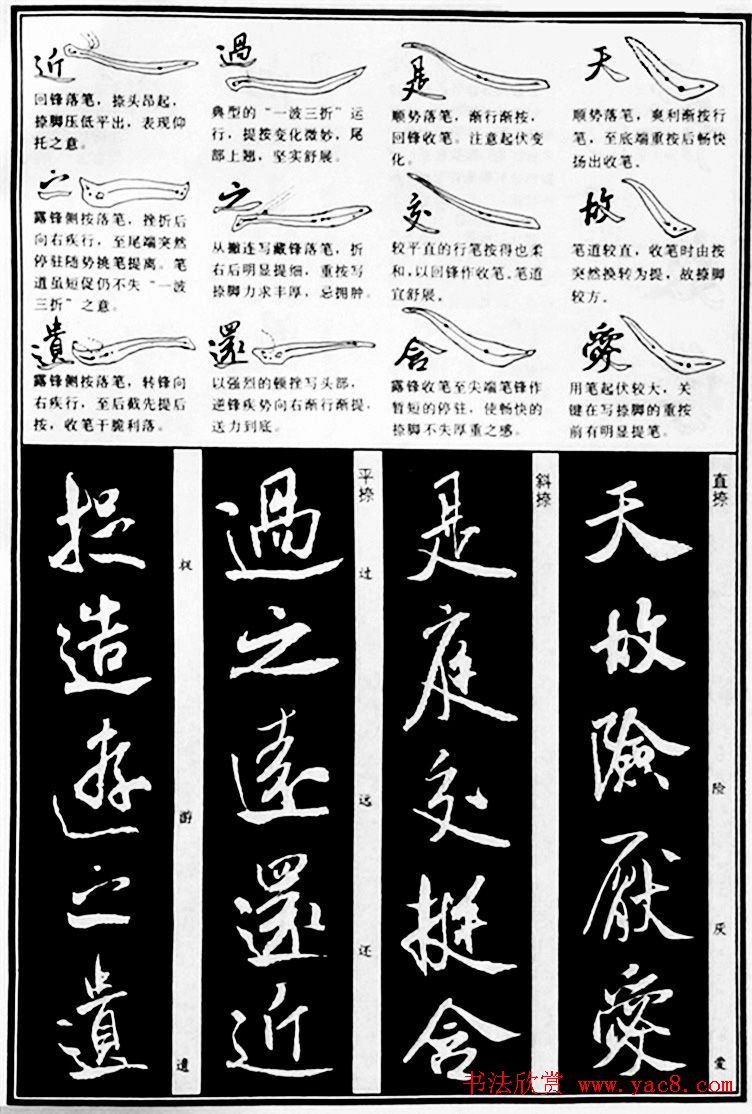 天
顺势落笔，爽利渐按行
笔，至底端重按后畅快
扬出收笔．
故
笔道较直，收笔时由按
突然换转为提，故捺脚
较方．
愛
用笔起伏较大，关
键在写捺脚的重按
前有明显提笔。
是
顺势落笔，渐行渐按，
回锋收笔。注意起伏变
化。
交
较平直的行笔按得也柔
和，以回锋作收笔。笔道
宜舒展。
含
露锋收笔至尖端笔锋作
暂短的停驻，使畅快的
捺脚不失厚重之感。
過
典型的“一波三折”运
行，提按变化微妙，尾
部上翘，坚实舒展。
之
从撇连写藏锋落笔，折
右后明显提细，重按写
捺脚力求丰厚，忌拥肿。
還
以强烈的顿挫写头部，
逆锋疾势向右渐行渐提，
送力到底。
近
回锋落笔，捺头昂起，
捺脚压低平出，表现仰
托之意。
之
露锋侧按落笔，挫折后
向右疾行，至尾端突然
停驻随势挑笔提离。笔
道虽短促仍不失“一波
三折”之意。
遺
露锋侧按落笔，转锋向
右疾行，至后截先提后
按，收笔干脆利落。
直捺
险
厌
爱
天故險厭愛
斜捺
是庭交挺含
平捺
过
远
还
過之遠還近
游
遗
造遊之遺
书法欣赏 www.yac8.com